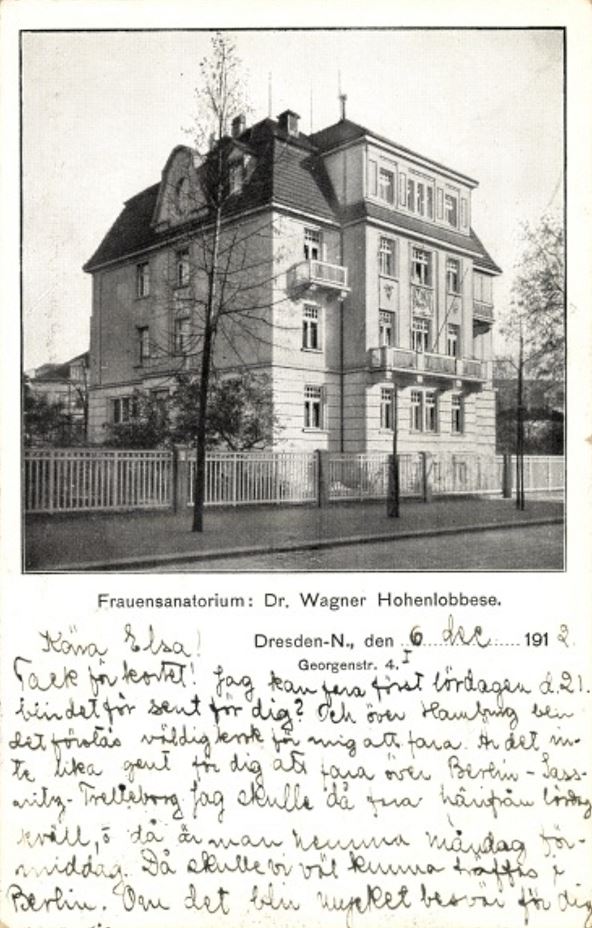 Frauensanatorium: Dr. Wagner Hohenlobbese.
Kära Elsa!
Dresden-N., den 6 dec 1912.
Georgenstr. 4. I
Tack för kortet! Jag kan fara först lördagen d. 21.
blir det för sent för dig? Och över Hamburg blir
det förstås väldig krok för mig att fara. Är det in-
te lika gent för dig att fara över Berlin-Sass-
nitz-Trelleborg. Jag skulle då fara härifrån lördag
kväll, o då är man hemma måndag för-
middag. Då skulle vi väl kunna träffas i
Berlin. Om det blir mycket besvär för dig